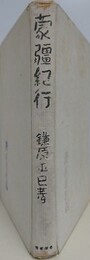 蒙疆紀行
鎌原正巳著